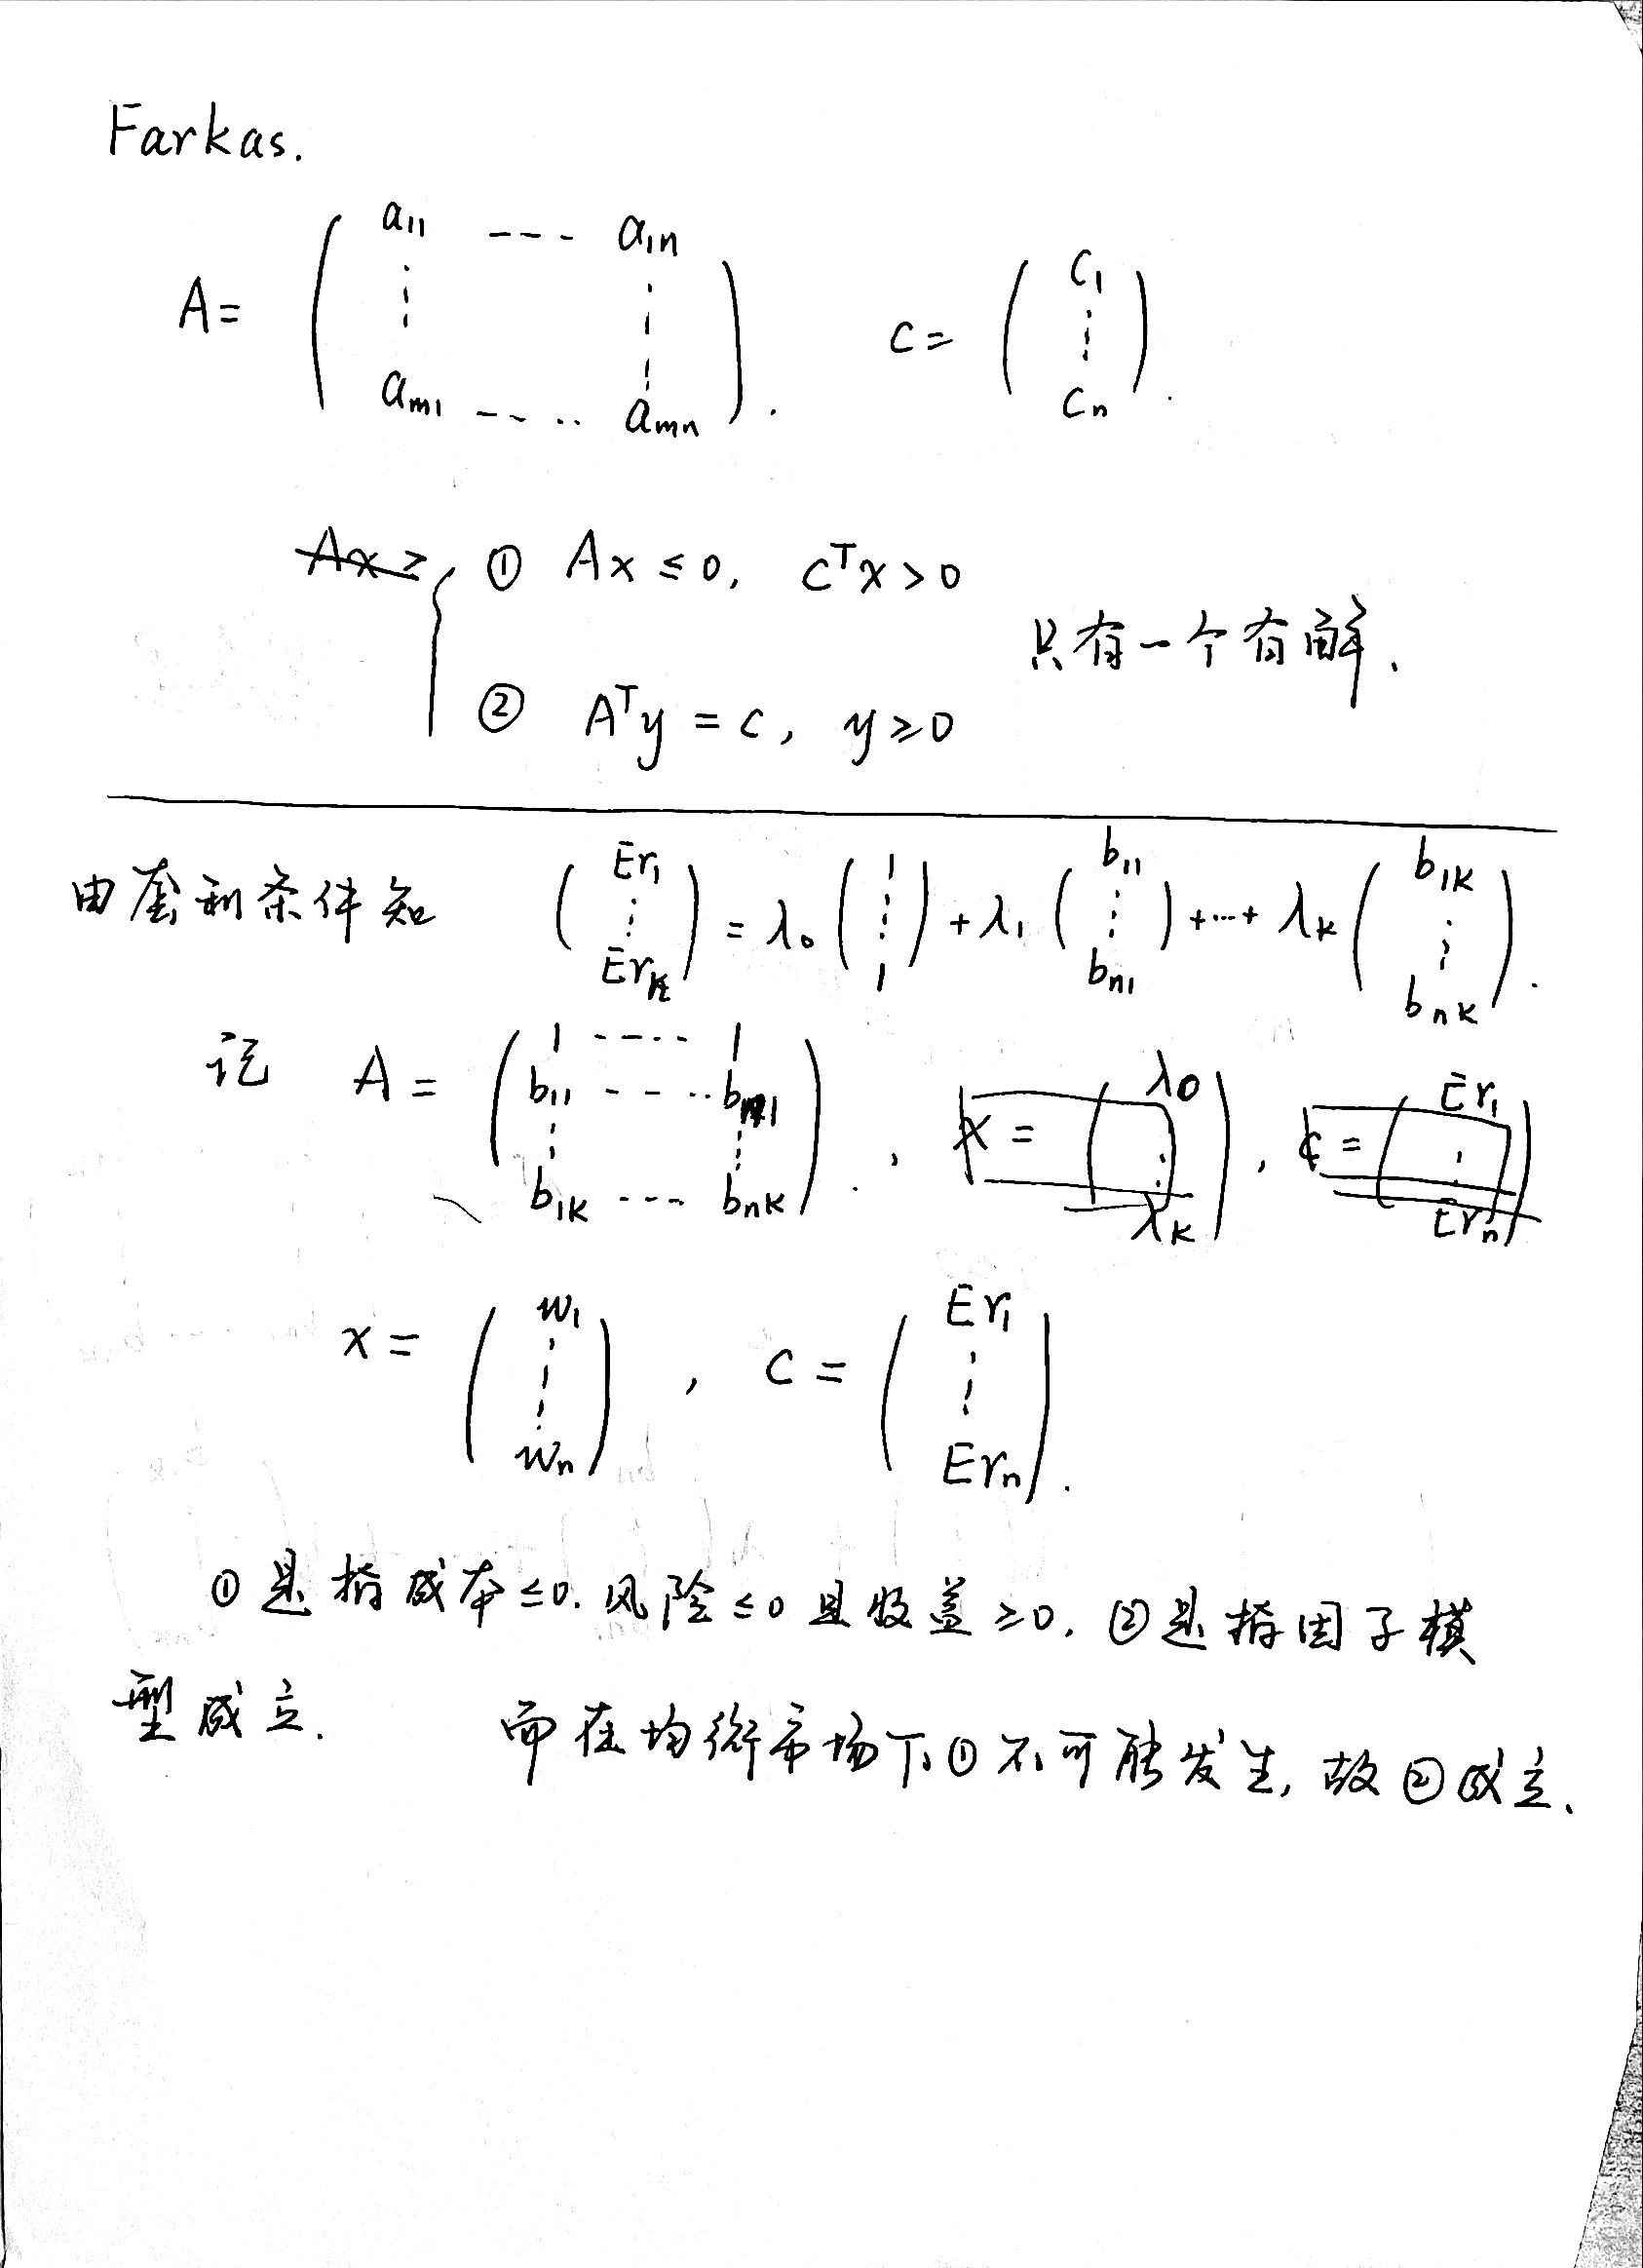 Farkas.
A = ( a₁₁ --- a₁ₙ ⋮ ⋮ aₘ₁ ---.. aₘₙ ). c = ( c₁ ⋮ cₙ ).
Ax ≥ { ① Ax ≤ 0, cᵀx > 0
只有一个有解.
② Aᵀy = c, y ≥ 0
由套利条件知 ( Er₁ ⋮ Erₖ ) = λ₀ ( 1 ⋮ 1 ) + λ₁ ( b₁₁ ⋮ bₙ₁ ) + ⋯ + λₖ ( b₁ₖ ⋮ bₙₖ ).
记 A = ( 1 ---- 1 b₁₁ ---.. bₙ₁ ⋮ ⋮ b₁ₖ --- bₙₖ ). , x = ( λ₀ ⋮ λₖ ), c = ( Er₁ ⋮ Erₙ )
x = ( w₁ ⋮ wₙ ), c = ( Er₁ ⋮ Erₙ ).
①是指成本≤0.风险≤0且收益≥0. ②是指因子模
型成立. 而在均衡市场下,①不可能发生,故②成立.